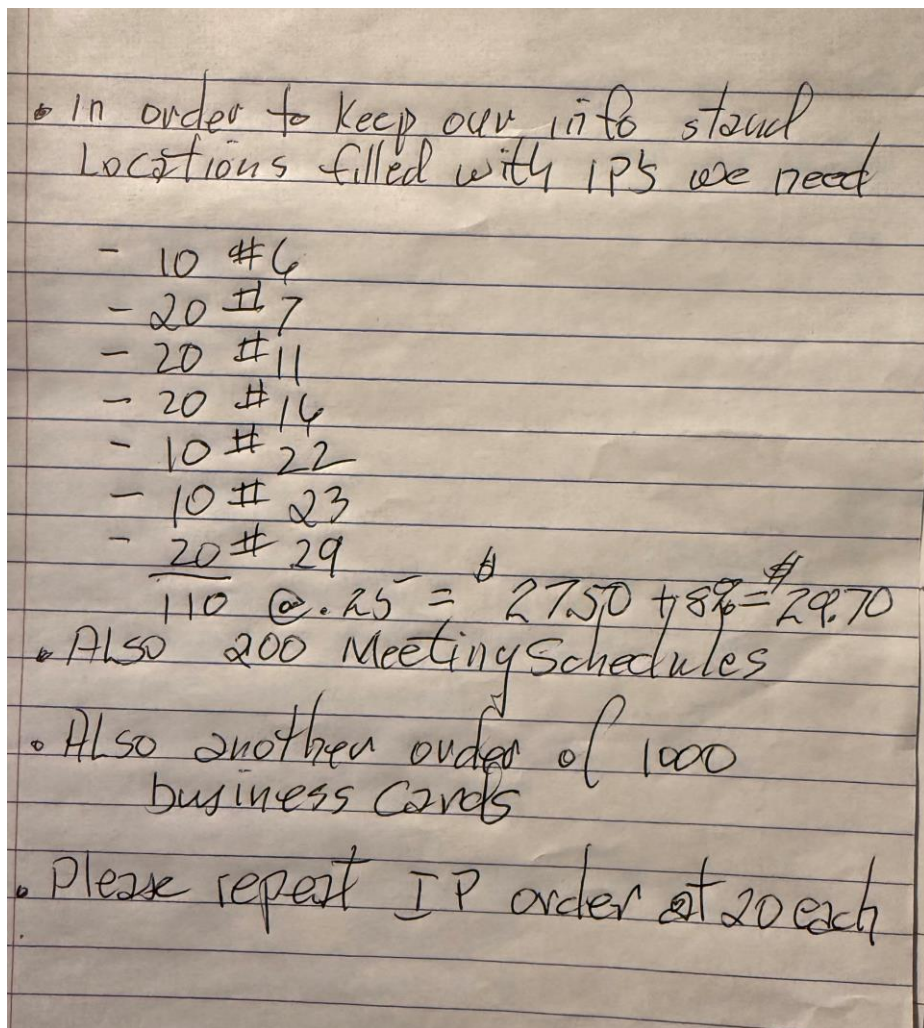 • In order to keep our info stand
Locations filled with IP'S we need
- 10 #6
- 20 #7
- 20 #11
- 20 #16
- 10 # 22
- 10 # 23
- 20 # 29
110 @ .25 = $ 27.50 + 8% = $29.70
• ALSO 200 Meeting Schedules
• ALSO another order of 1000
business Cards
• Please repeat IP order at 20 each